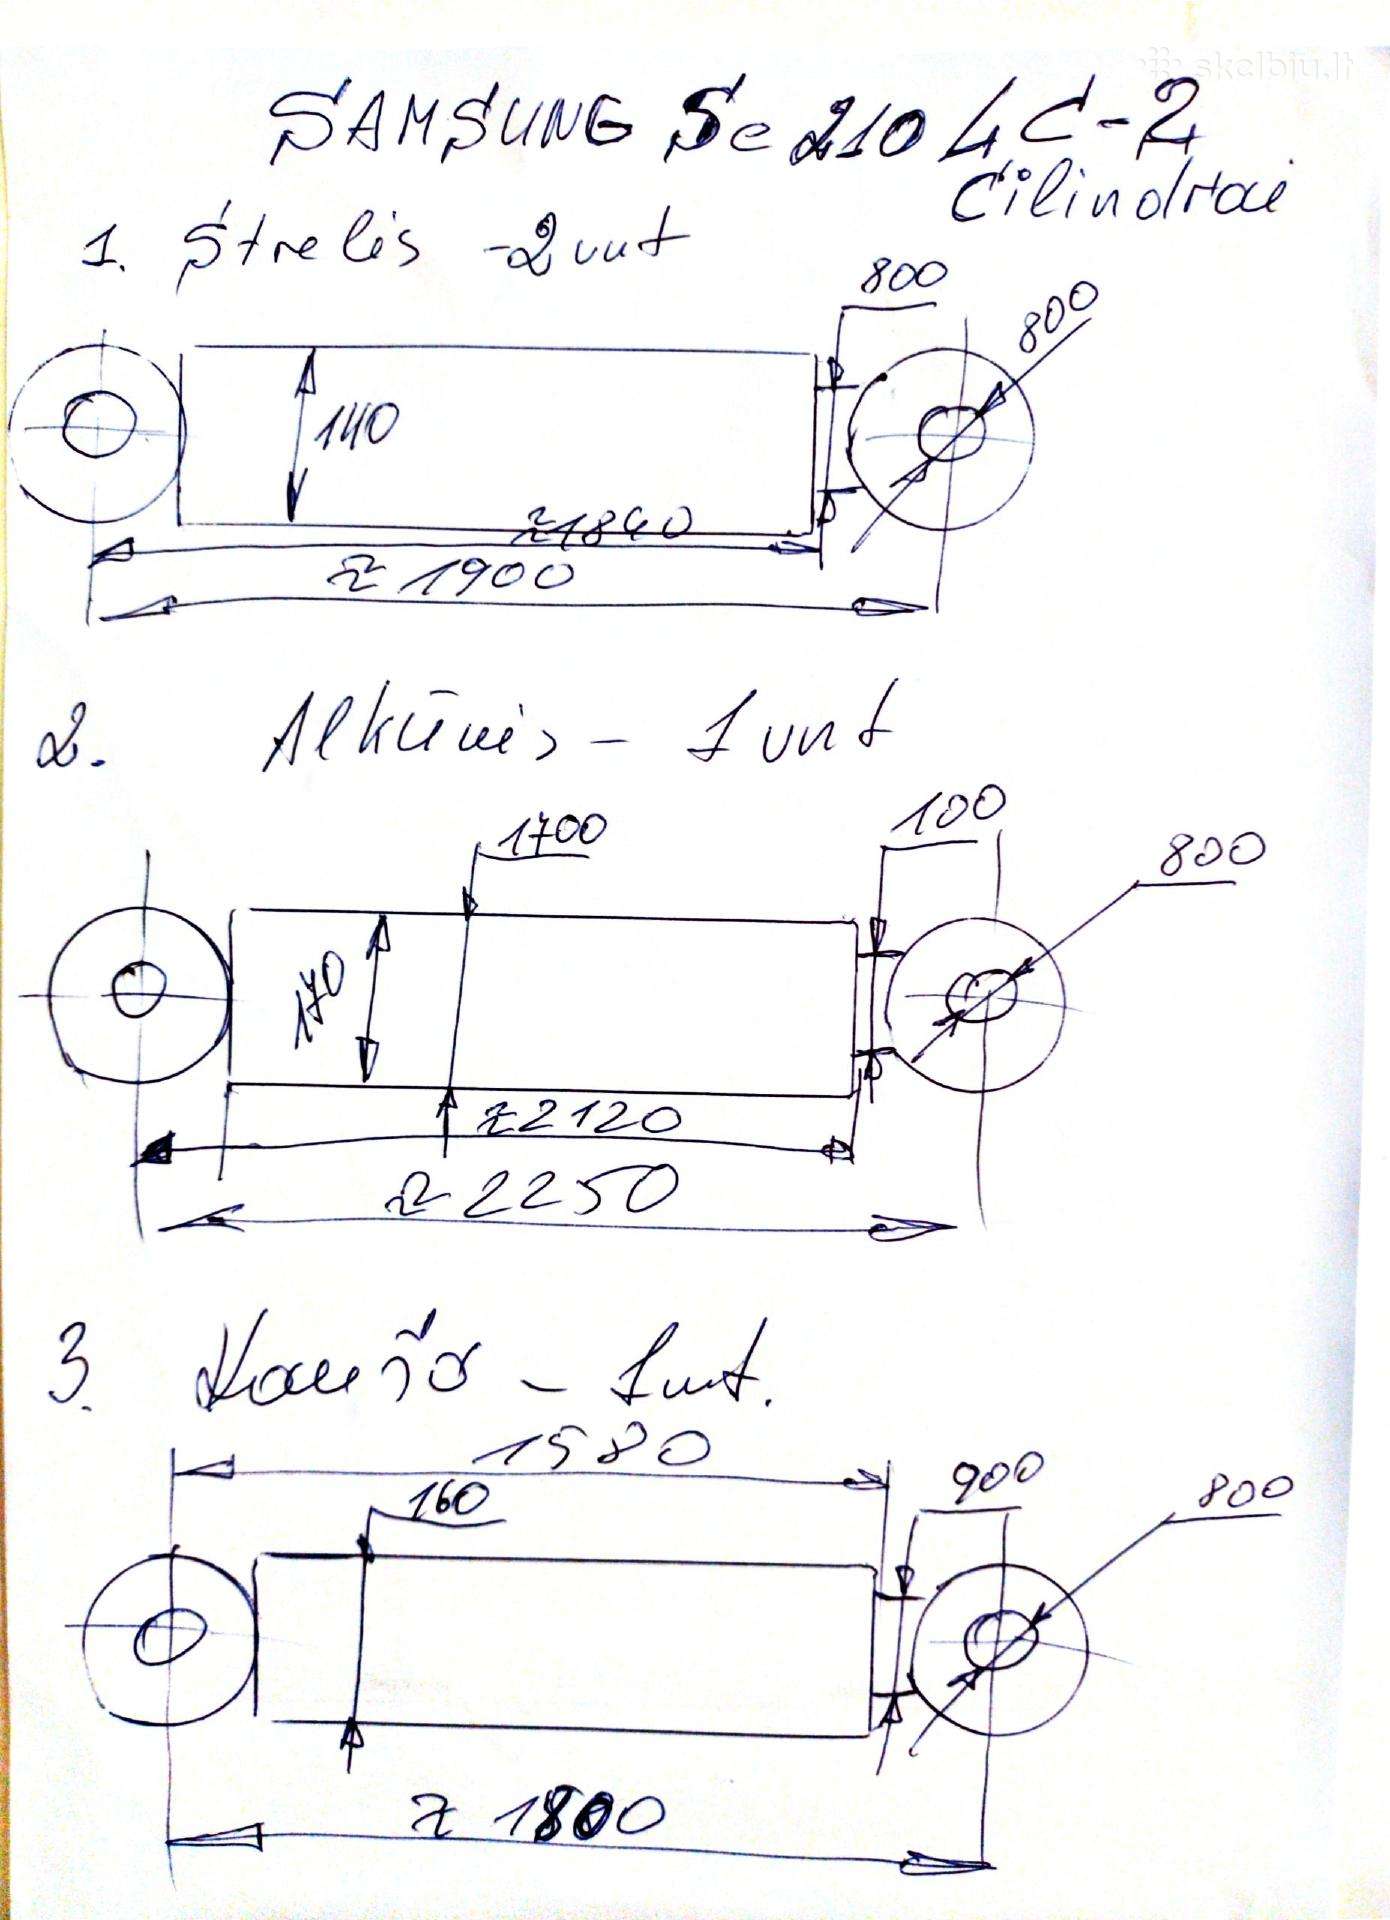 skelbiu.lt
SAMSUNG Se 210 LC-2
Cilindrai
1. Strelės - 2 vnt
800
800
140
≈1840
≈ 1900
2. Alkūnės - 1 vnt
1700
100
800
170
≈2120
≈ 2250
3. Kaušo - 1 vnt.
1580
160
900
800
≈ 1800